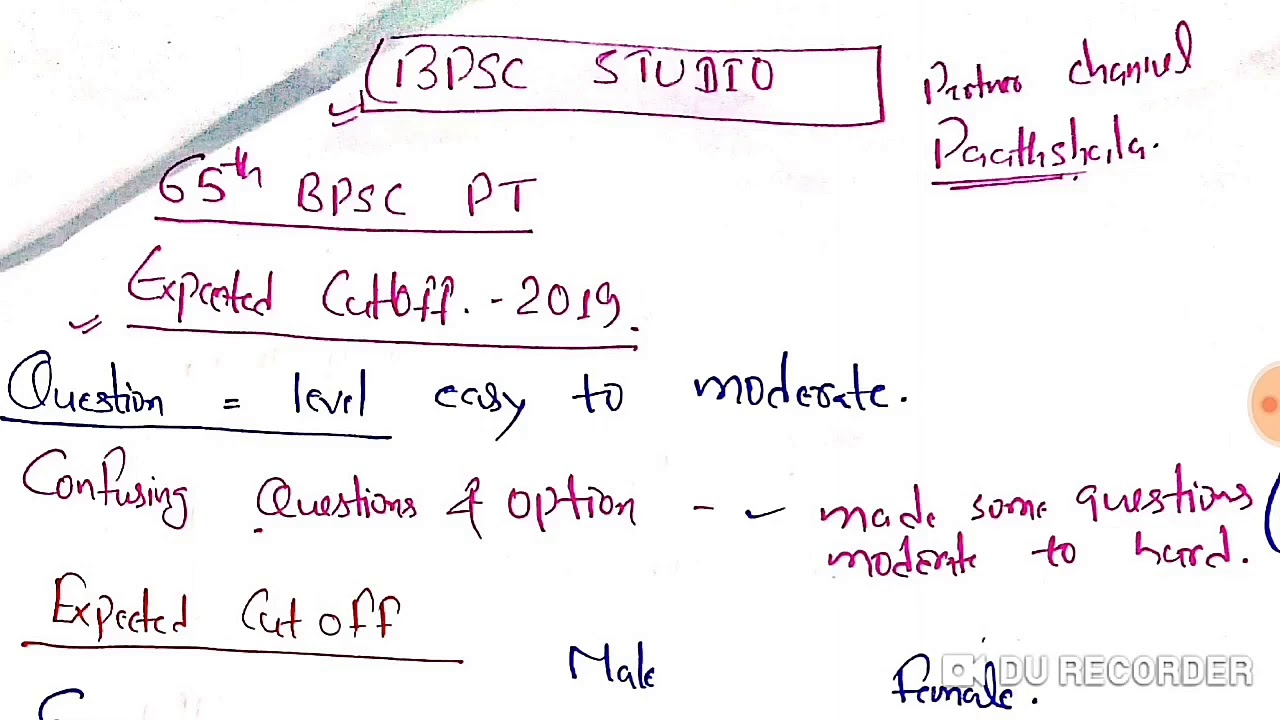 BPSC STUDIO
Partner channel
Paathshala.
65th BPSC PT
Expected Cutoff. - 2019.
Question = level easy to moderate.
Confusing Questions & option - made some questions
moderate to hard.
Expected Cut off
Male Female.
DU RECORDER